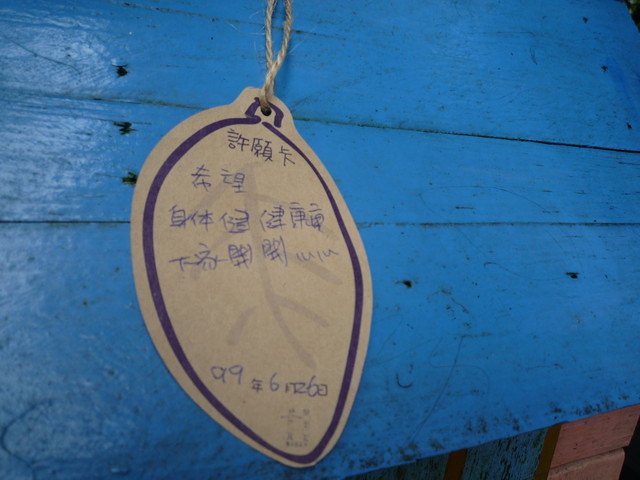 許願卡
希望
身体健健康康
大家開開心心
99年6月26日